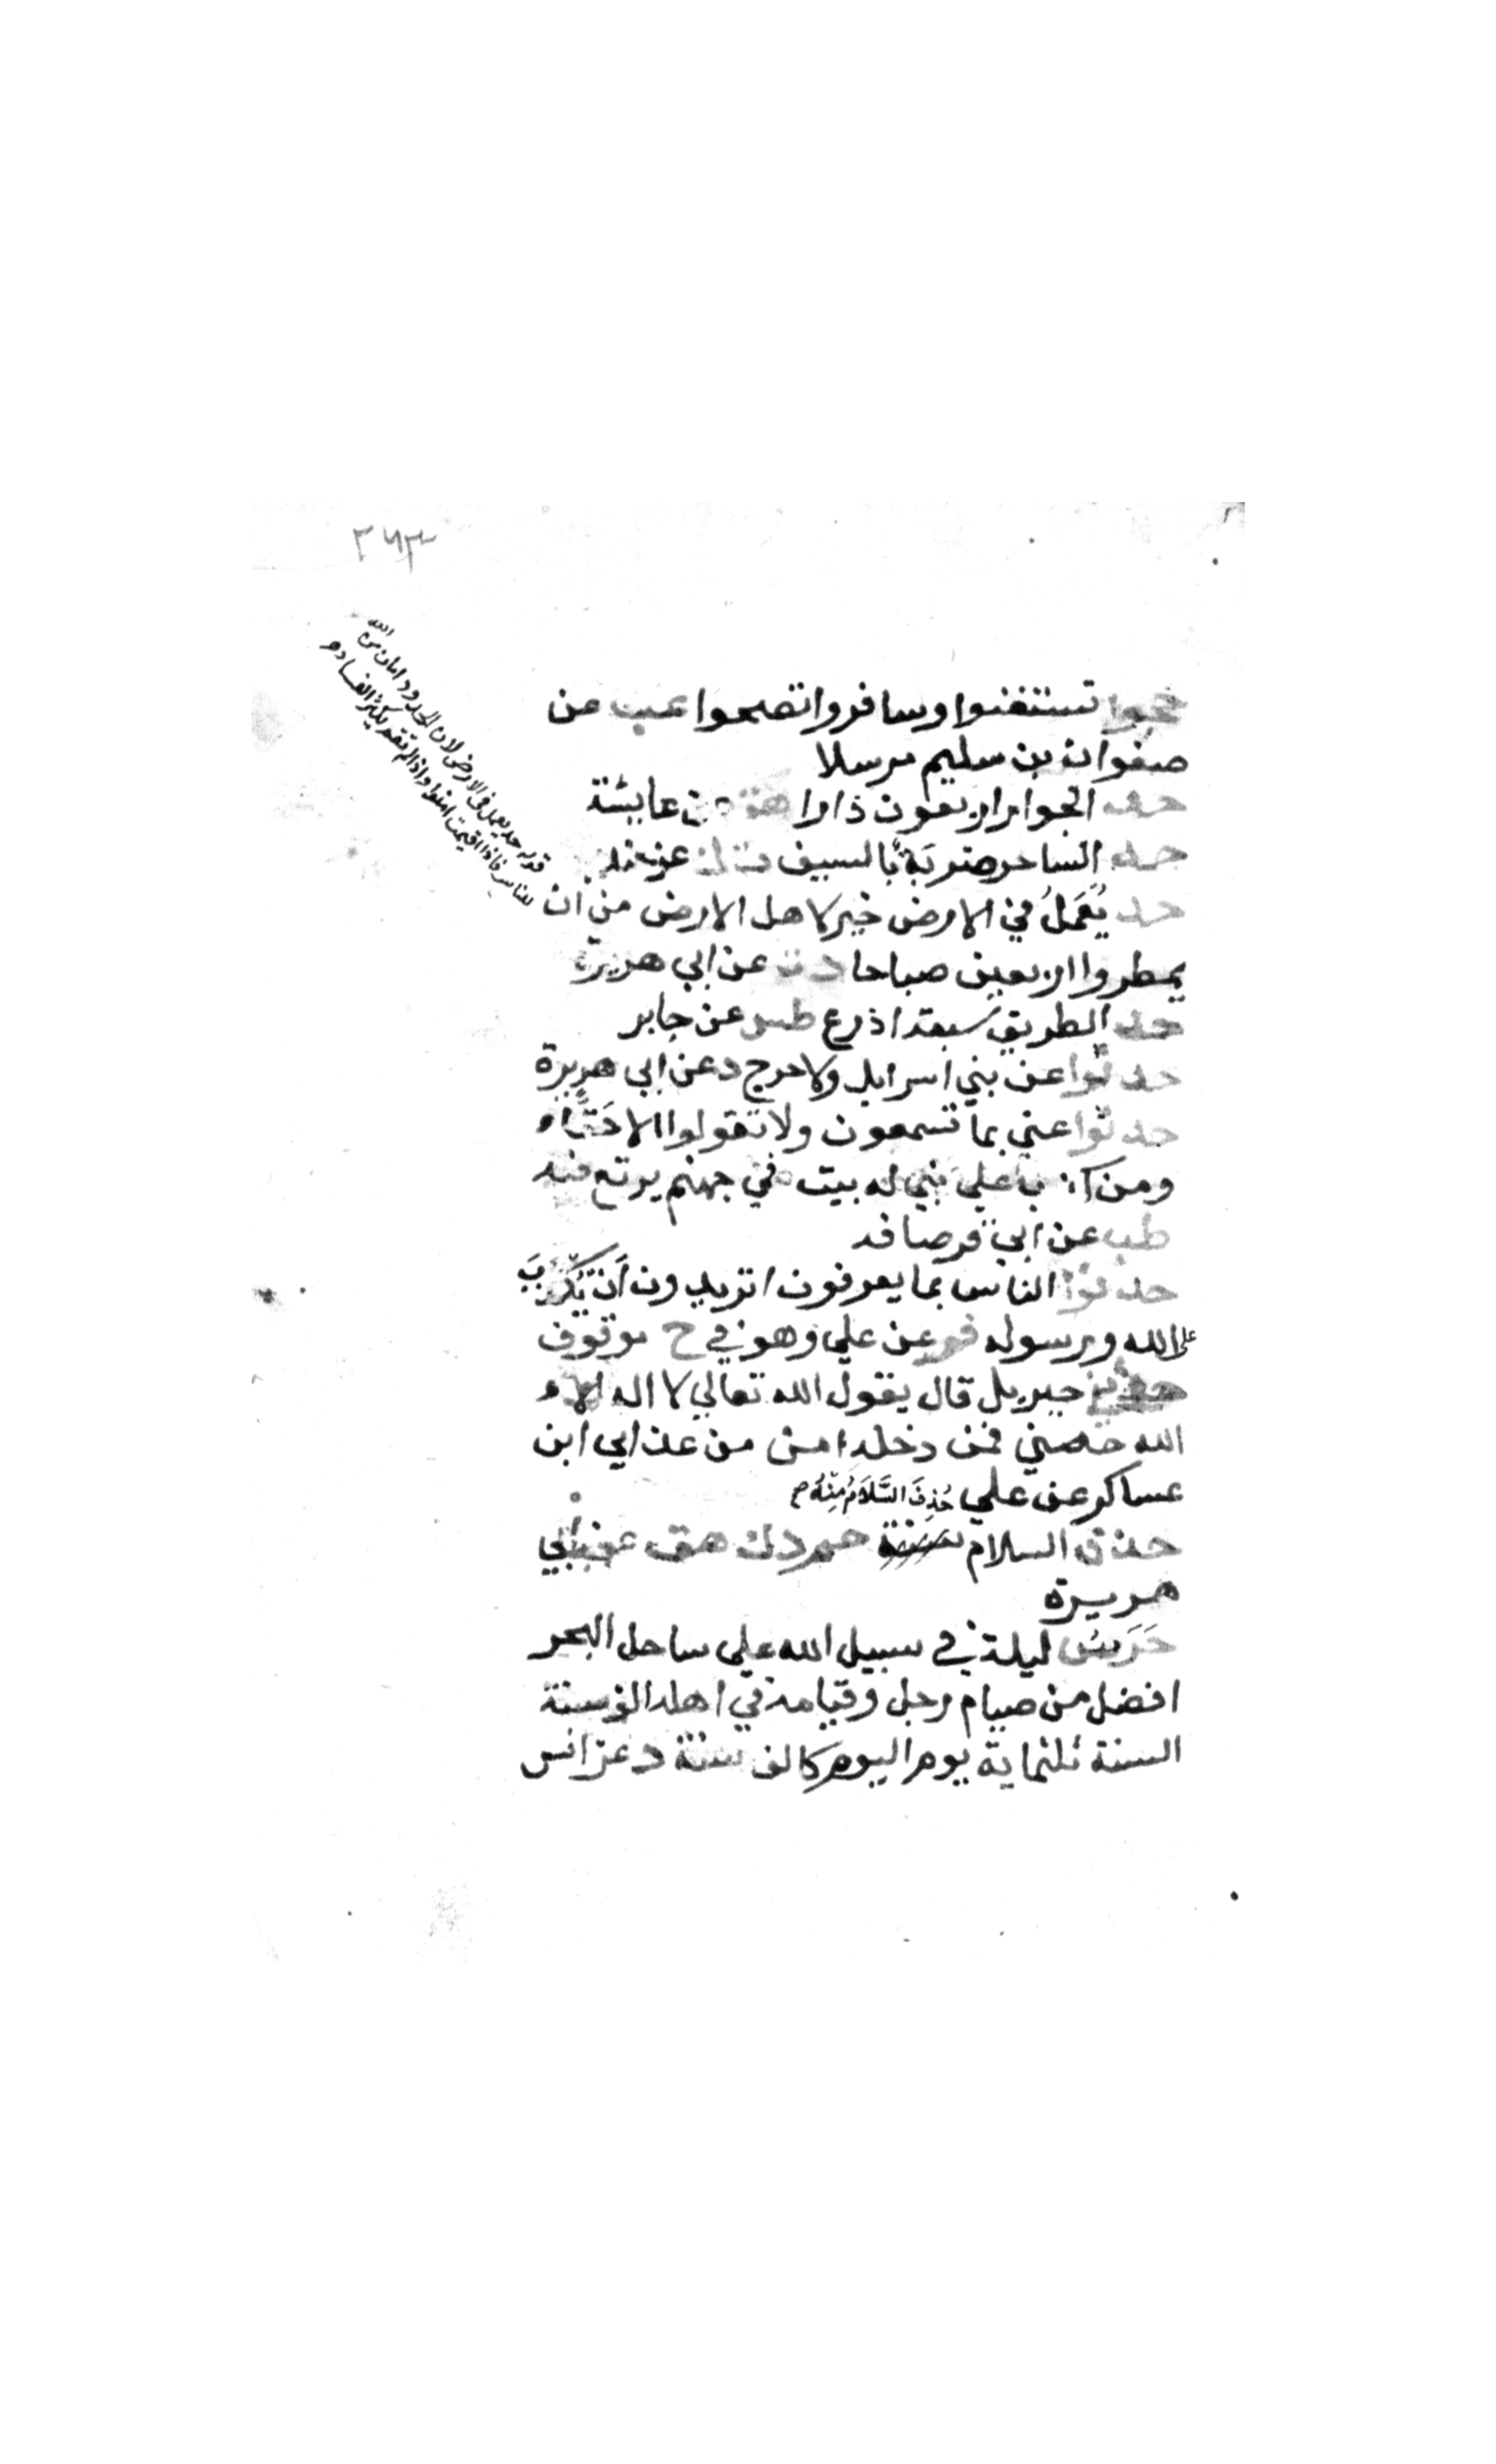 ٢٦٣
حجوا تستغنوا وسافروا تصحوا عب عن
صفوان بن سليم مرسلا
حد الجوار اربعون دارا هق عن عايشة
حد الساحر ضربة بالسيف ت ك عن جند
حد يُعمَلُ في الارض خير لاهل الارض من ان
يمطروا اربعين صباحا ن عن ابي هريرة
حد الطريق سبعة اذرع طس عن جابر
حدثوا عن بني اسرايل ولا حرج د عن ابي هريرة
حدثوا عني بما تسمعون ولا تقولوا الا حَقًّا
ومن كذب علي بني له بيت في جهنم يرتع فيه
طب عن ابي قرصافه
حدثوا الناس بما يعرفون اتريدون أن يُكَذَّبَ
الله ورسوله فر عن علي وهو في خ موقوف
حدثني جبريل قال يقول الله تعالي لا اله الا
الله حصني فمن دخله امن من عذابي ابن
عساكر عن علي حُذِفَ السَّلَامُ مِنْهُ
حذف السلام سنة حم د ك هق عن ابي
هريرة
حَرَسُ ليلة في سبيل الله علي ساحل البحر
افضل من صيام رجل وقيامه في اهله الف سنة
السنة ثلثماية يوم اليوم كالف سنة د عن انس
قوله حد يعمل في الارض لان الحدود امان من الله
للناس فاذا اقيمت امنوا واذا لم تقم يكثر الفساد